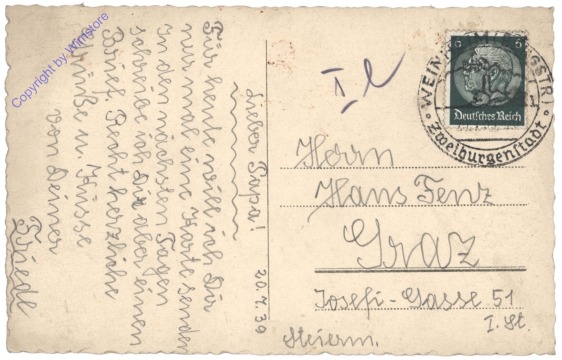 Copyright by WinStore
20.7.39
Lieber Papa!
Für heute will ich Dir
nur mal eine Karte senden
In den nächsten Tagen
schreibe ich Dir aber einen
Brief. Recht herzliche
Grüße u. Küsse
von Deiner
Friedl
6 6
Deutsches Reich
WEINHEIM (BERGSTR)
Zweiburgenstadt
Herrn
Hans Fenz
Graz
Josefi-Gasse 51
I. St.
Steierm.